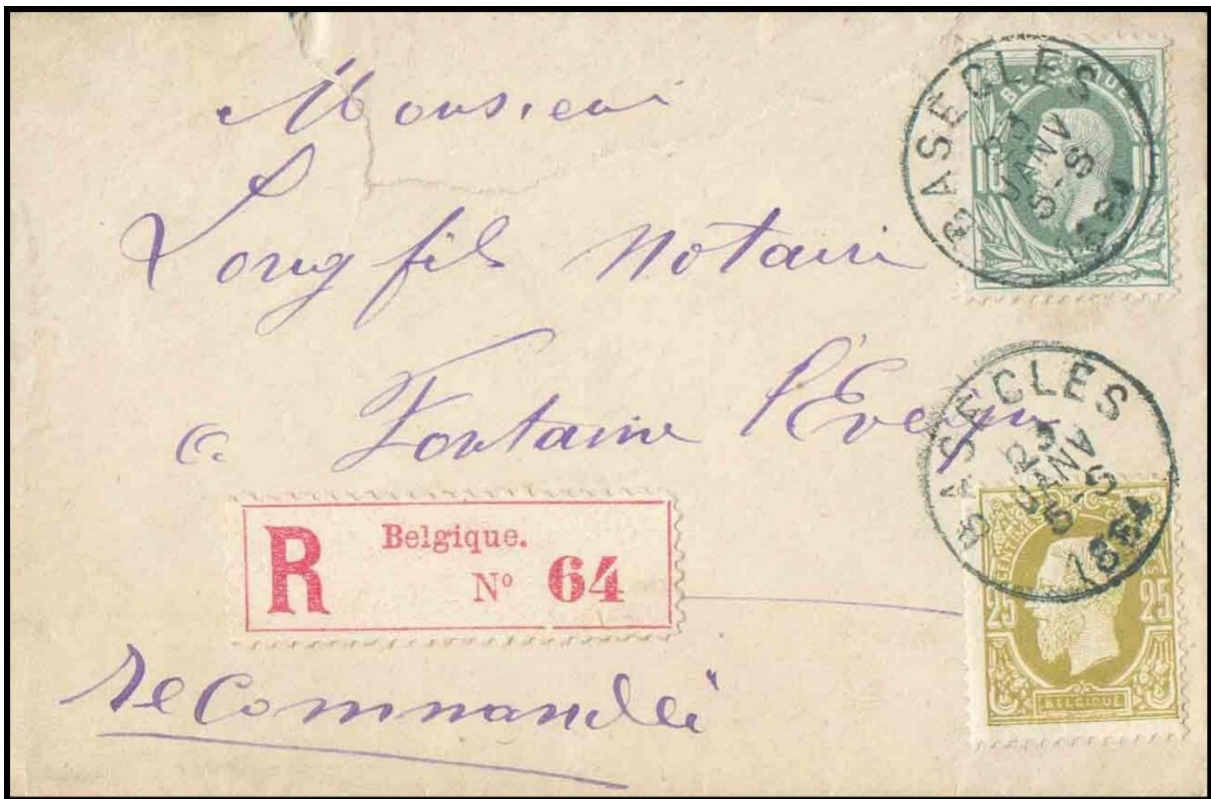 Monsieur
Long fils Notaire
a Fontaine l'Eveque
R Belgique.
N° 64
recommandée
BASECLES
JANV
BELGIQUE
BASECLES
JANV
CENTIMES
25 25
BELGIQUE